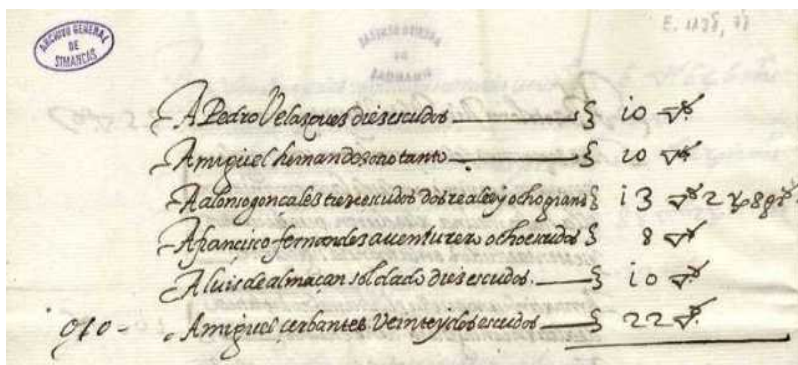 ARCHIVO GENERAL
DE
SIMANCAS
E. 1138,
A Pedro Velazques dies escudos } 10
A miguel hernandes otro tanto } 10
A alonso goncales trece escudos dos reales y ocho granos } 13 2 8
A francisco fernandes aventurero ocho escudos } 8
A luis de almaçan soldado dies escudos } 10
A miguel cerbantes Veinte y dos escudos } 22